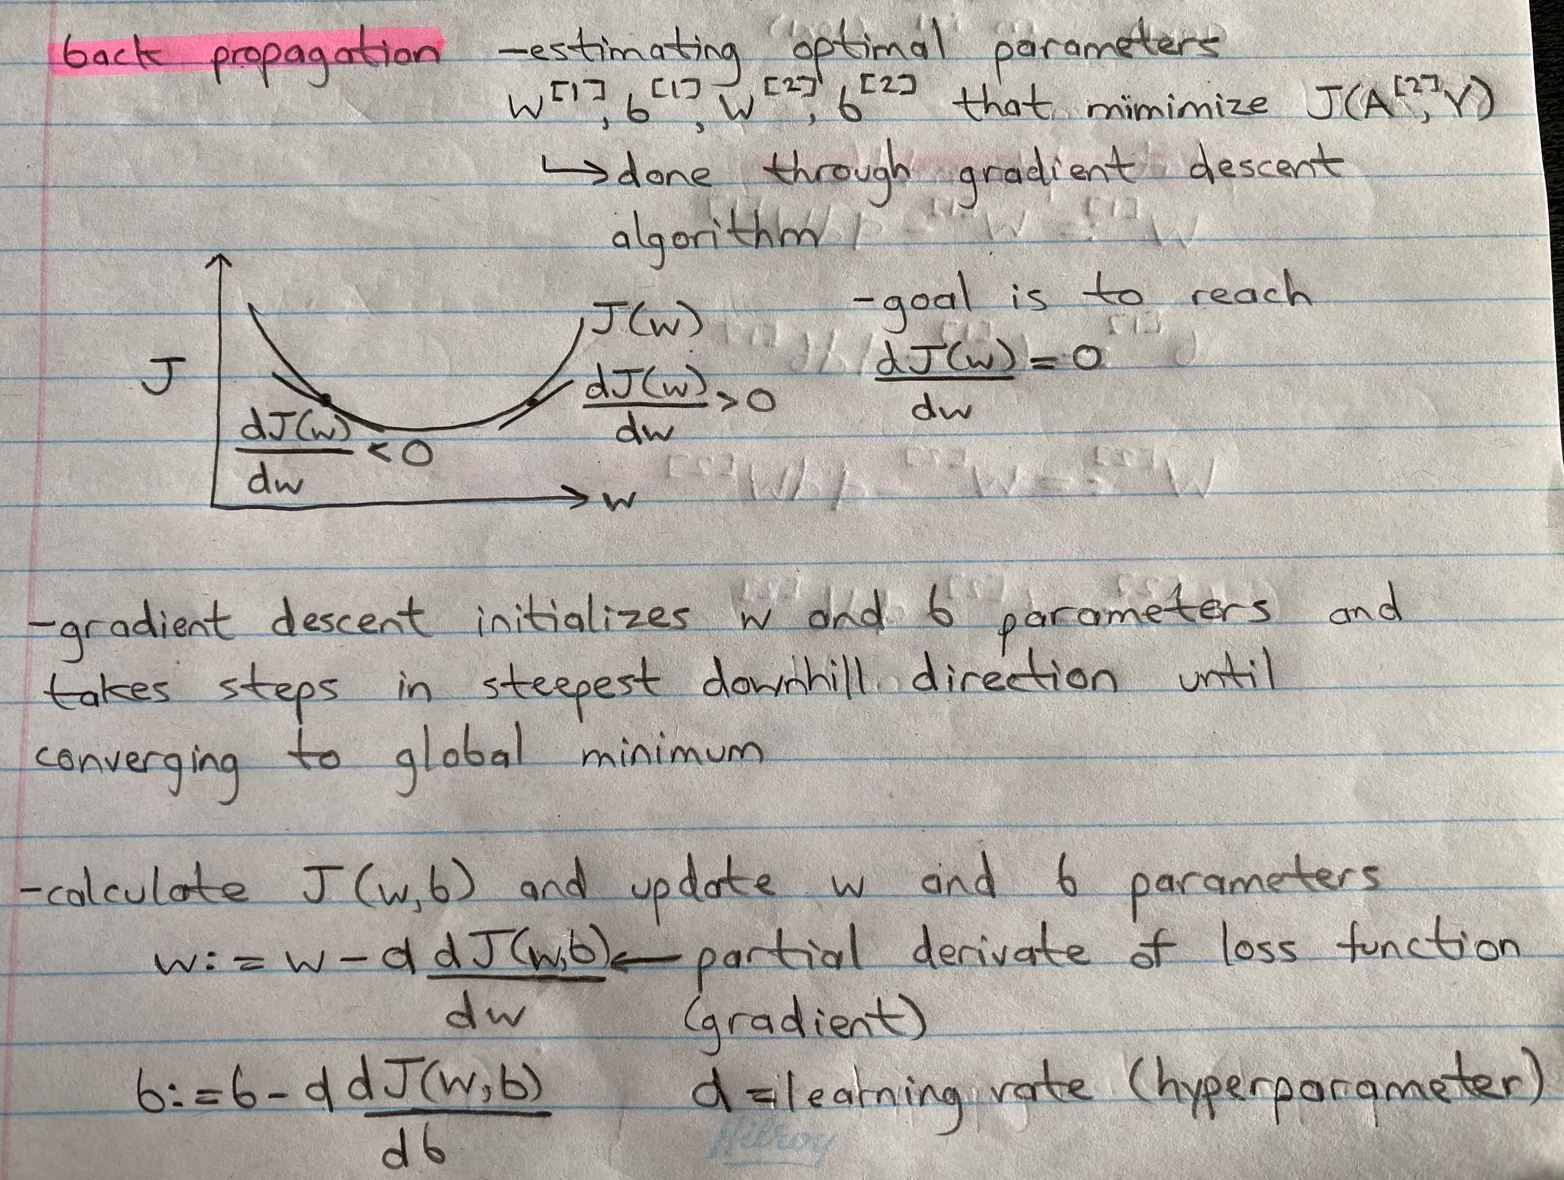 back propagation -estimating optimal parameters
W[1], b[1], W[2], b[2] that mimimize J(A[2], Y)
↳ done through gradient descent
algorithm
-goal is to reach
dJ(w) = 0
dw
J
J(w)
dJ(w) > 0
dw
dJ(w) < 0
dw
w
-gradient descent initializes w and b parameters and
takes steps in steepest downhill direction until
converging to global minimum
-calculate J(w,b) and update w and b parameters
w := w - α dJ(w,b) ← partial derivate of loss function
dw (gradient)
b := b - α dJ(w,b) α = learning rate (hyperparameter)
db
Hilroy